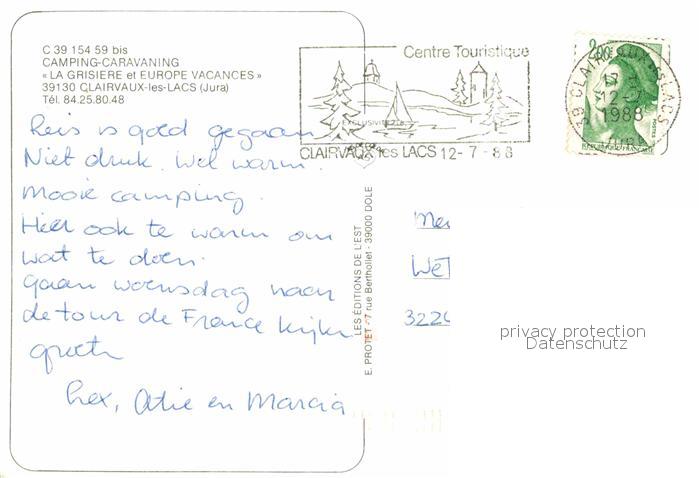 C 39 154 59 bis
CAMPING-CARAVANING
« LA GRISIERE et EUROPE VACANCES »
39130 CLAIRVAUX-les-LACS (Jura)
Tél. 84.25.80.48
Reis is goed gegaan
Niet druk. Wel warm.
Mooie camping.
Hier ook te warm om
wat te doen.
Gaan woensdag naar
de tour de France kijken
groeten
Lex, Atie en Marcia
LES ÉDITIONS DE L'EST
E. PROTET - 7 rue Berthollet - 39000 DOLE
Centre Touristique
CLAIRVAUX les LACS 12-7-88
2,00
39 CLAIRVAUX-LES-LACS
12-7
1988
JURA
REPUBLIQUE FRANÇAISE
3220
privacy protection
Datenschutz